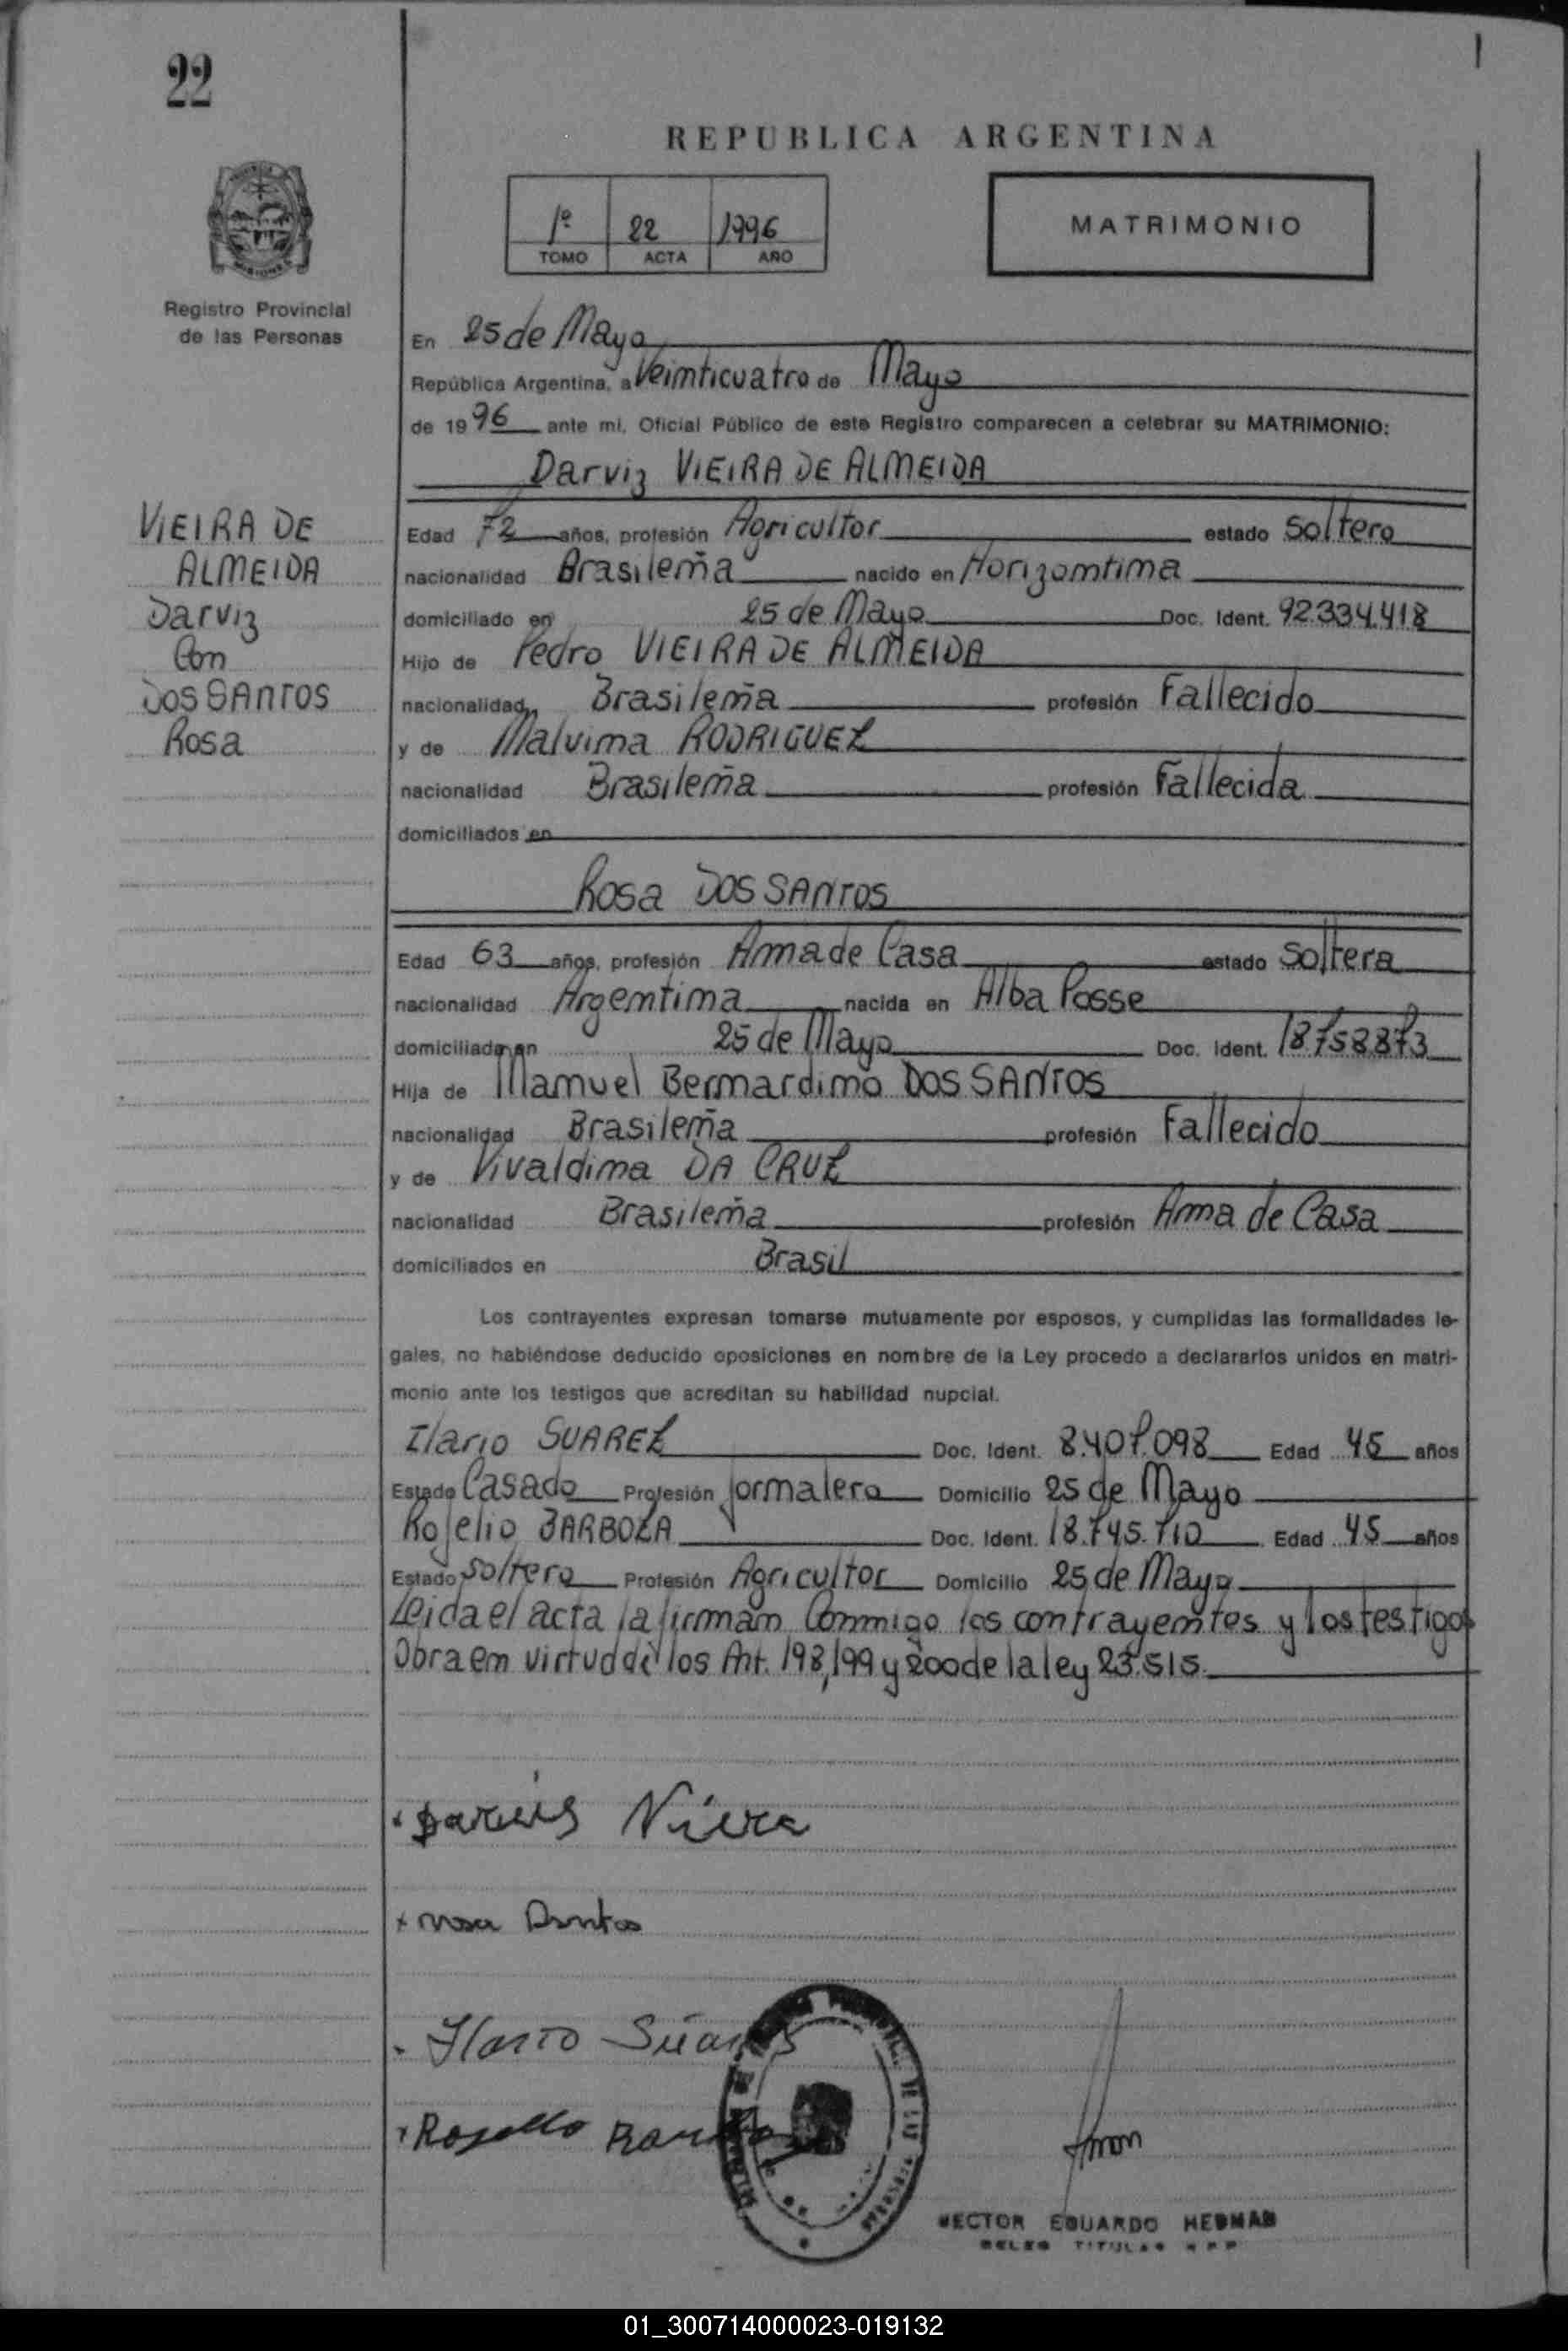 22
REPUBLICA ARGENTINA
1º 22 1996
TOMO ACTA AÑO
MATRIMONIO
Registro Provincial
de las Personas
En 25 de Mayo
República Argentina, a Veimticuatro de Mayo
de 1996 ante mi, Oficial Público de este Registro comparecen a celebrar su MATRIMONIO:
Darviz VIEIRA DE ALMEIDA
VIEIRA DE
ALMEIDA
Darviz
Con
DOS SANTOS
Rosa
Edad 72 años, profesión Agricultor estado Soltero
nacionalidad Brasileña nacido en Horizomtima
domiciliado en 25 de Mayo Doc. Ident. 92.334.418
Hijo de Pedro VIEIRA DE ALMEIDA
nacionalidad Brasileña profesión Fallecido
y de Malvima RODRIGUEZ
nacionalidad Brasileña profesión Fallecida
domiciliados en
Rosa DOS SANTOS
Edad 63 años, profesión Ama de Casa estado Soltera
nacionalidad Argemtima nacida en Alba Posse
domiciliada en 25 de Mayo Doc. Ident. 18758873
Hija de Mamuel Bermardimo DOS SANTOS
nacionalidad Brasileña profesión Fallecido
y de Vivaldima DA CRUZ
nacionalidad Brasileña profesión Ama de Casa
domiciliados en Brasil
Los contrayentes expresan tomarse mutuamente por esposos, y cumplidas las formalidades le-
gales, no habiéndose deducido oposiciones en nombre de la Ley procedo a declararlos unidos en matri-
monio ante los testigos que acreditan su habilidad nupcial.
Ilario SUAREZ Doc. Ident. 8.407.098 Edad 45 años
Estado Casado Profesión Jormalero Domicilio 25 de Mayo
Rojelio BARBOZA Doc. Ident. 18.745.710 Edad 45 años
Estado Soltero Profesión Agricultor Domicilio 25 de Mayo
Leida el acta la firmam Commigo los contrayemtes y los testigos
Obra em virtud de los Art. 198, 199 y 200 de la ley 23.515.
Rosa Santos
Ilario Suares
HECTOR EDUARDO
TITULAR
01_300714000023-019132